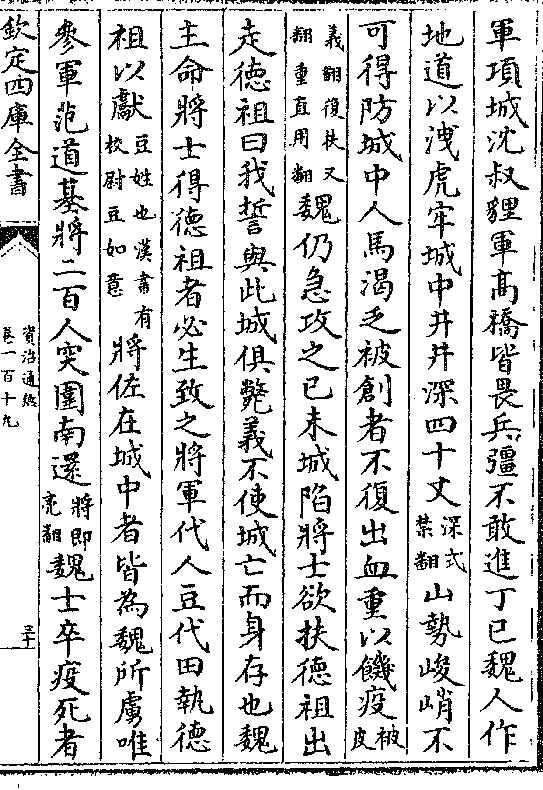 軍項城沈叔貍軍高橋皆畏兵彊不敢進丁巳魏人作
地道以洩虎牢城中井井深四十丈深式禁翻山勢峻峭不
可得防城中人馬渴乏被創者不復出血重以饑疫被皮
義翻復扶又翻重直用翻魏仍急攻之己未城陷將士欲扶德祖出
走德祖曰我誓與此城俱斃義不使城亡而身存也魏
主命將士得德祖者必生致之將軍代人豆代田執德
祖以獻豆姓也漢書有校尉豆如意將佐在城中者皆為魏所虜唯
參軍范道基將二百人突圍南還將即亮翻魏士卒疫死者
欽定四庫全書
資治通鑑
卷一百十九
三十